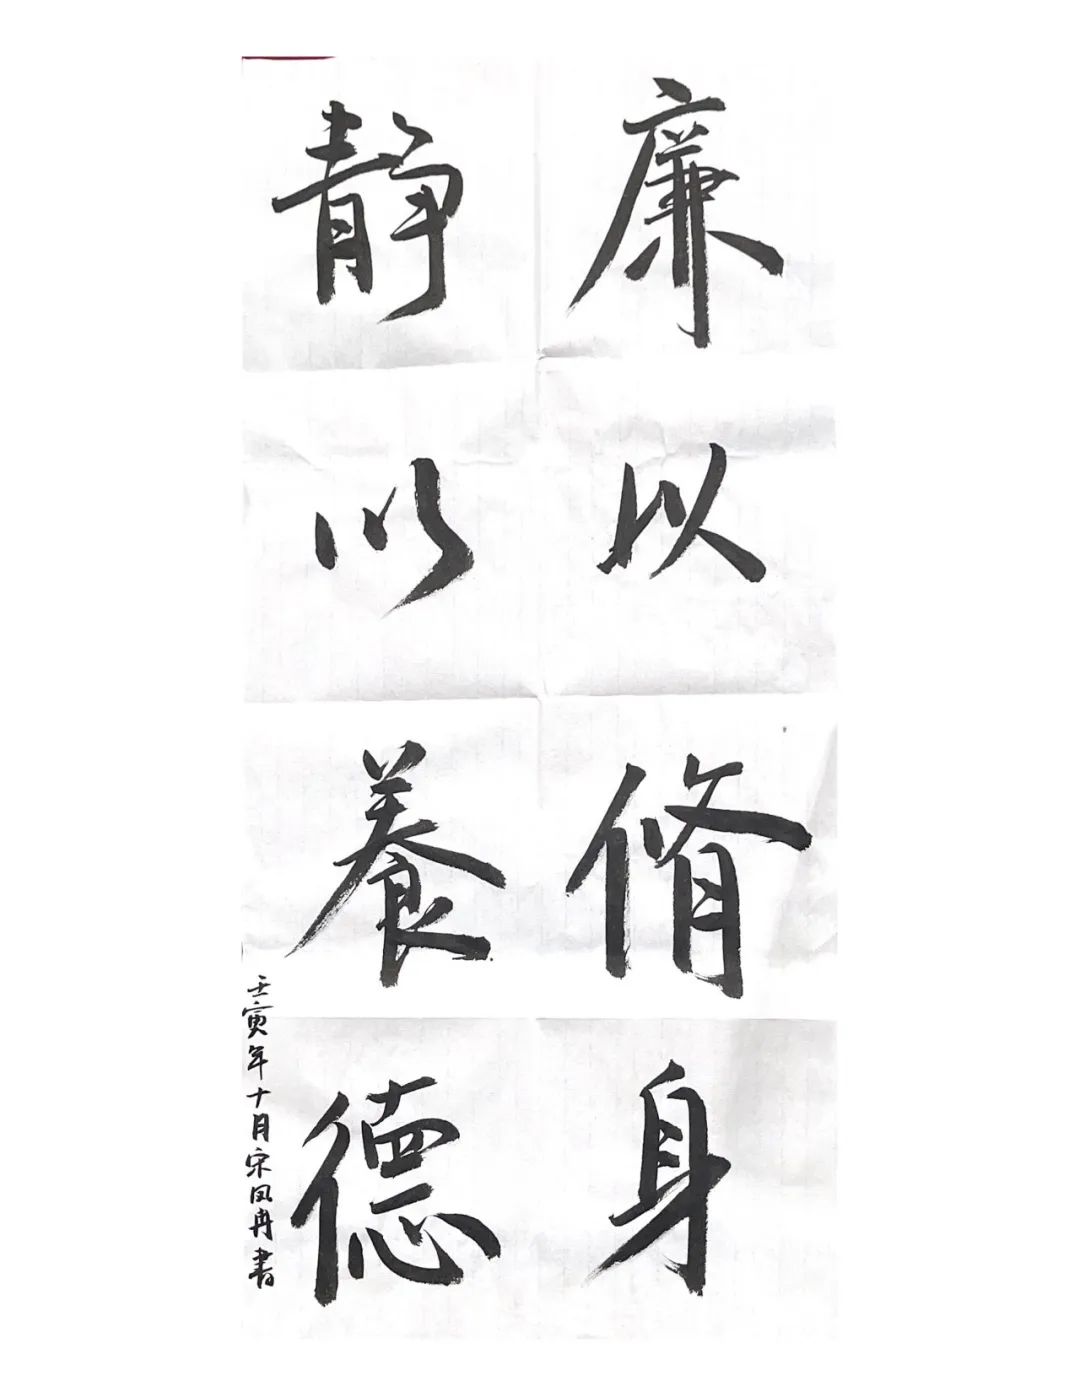 廉以脩身
静以養德
壬寅年十月宋凤冉書